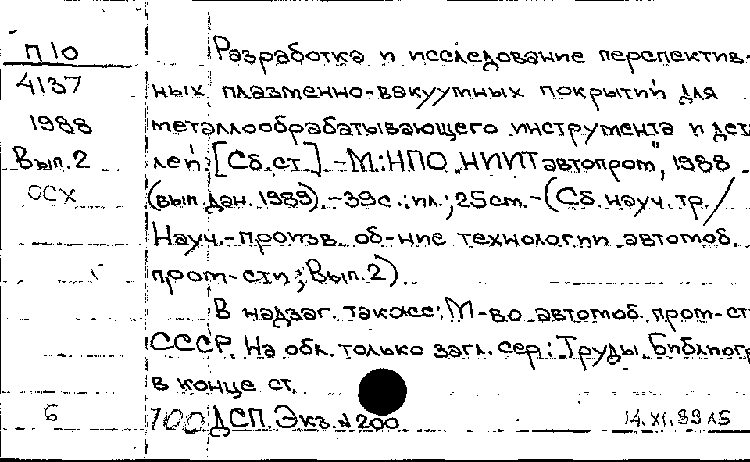 П10 Разработка и исследование перспектив-
4137 ных плазменно-вакуумных покрытий для
1988 металлообрабатывающего инструмента и дета
Вып.2 лей: [Сб.ст.] - М.: НПО "НИИТавтопром", 1988
ОСХ (вып.дан. 1989). - 39с.: ил.; 25см. - (Сб. науч. тр. /
Науч.-произв. об-ние технологии автомоб.
пром-сти; Вып.2).
В надзаг. также: М-во автомоб. пром-ст
СССР. На обл. только загл. сер: Труды. Библиогр
в конце ст.
6 100 ДСП. Экз. № 200